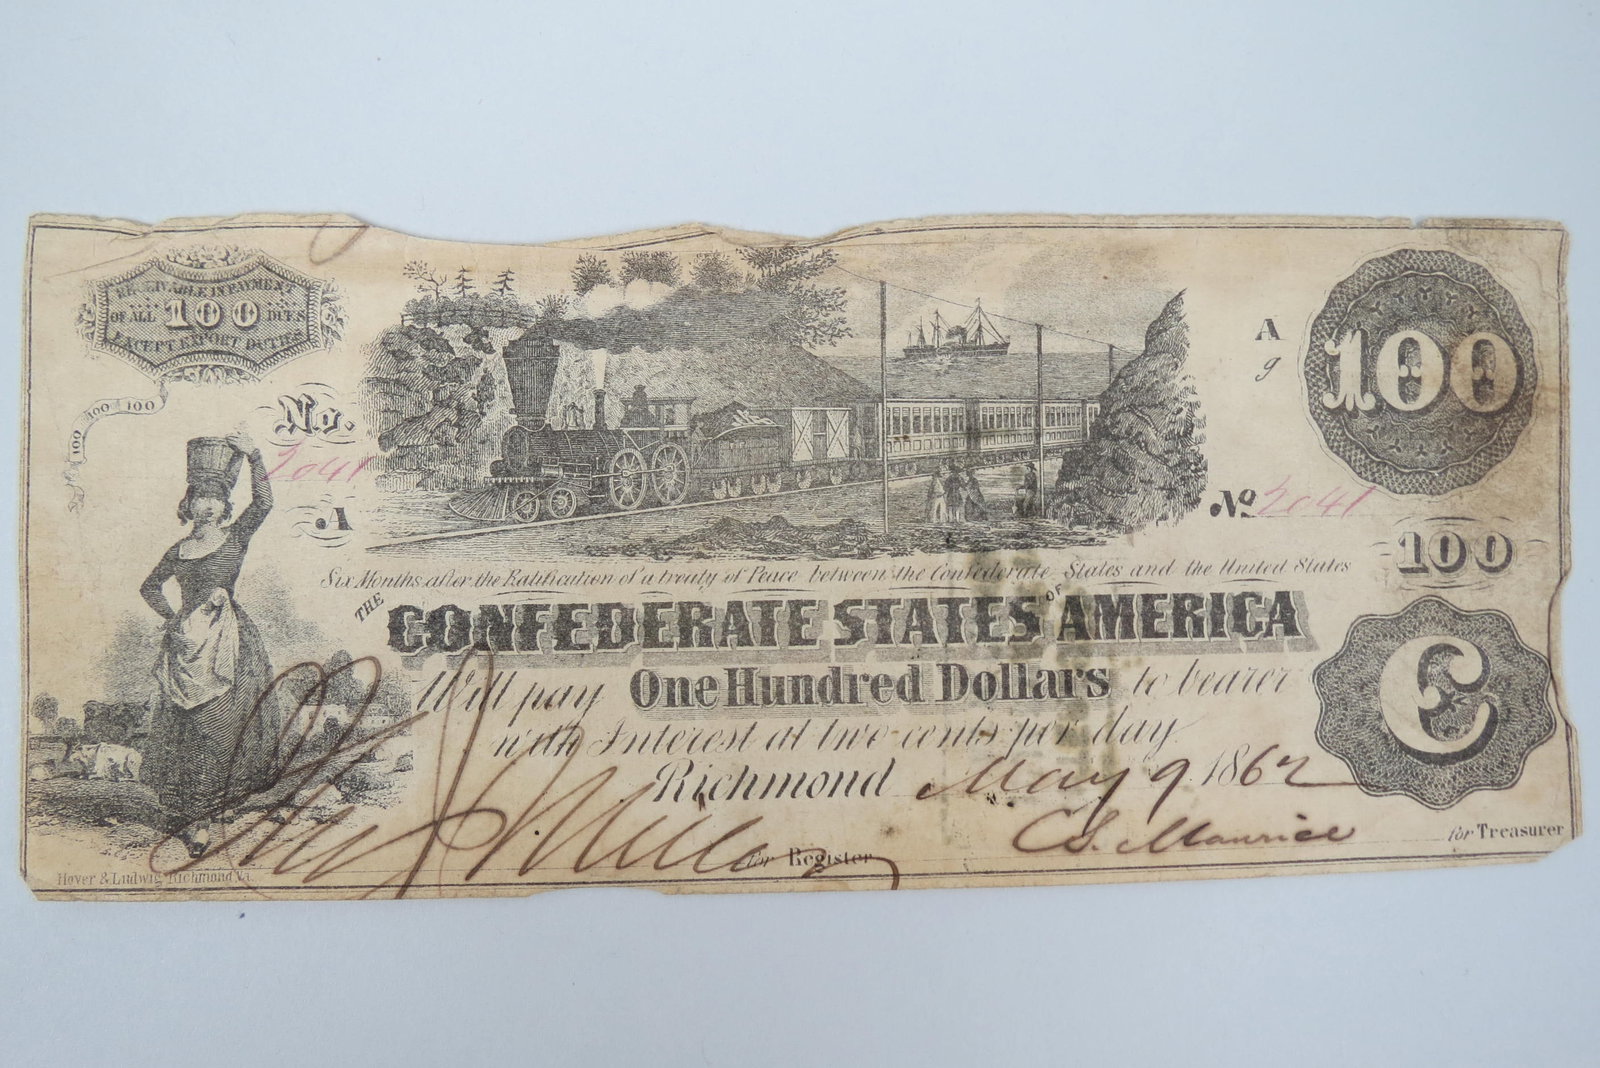 RECEIVABLE IN PAYMENT
OF ALL 100 DUES
EXCEPT EXPORT DUTIES
100 100 100
No.
2041
A
A
9
100
No 2041
100
Six Months after the Ratification of a treaty of Peace between the Confederate States and the United States
THE CONFEDERATE STATES OF AMERICA
Will pay One Hundred Dollars to bearer
with Interest at two cents per day
Richmond May 9 1862
C
for Register
C.S. Maurice for Treasurer
Hoyer & Ludwig, Richmond Va.